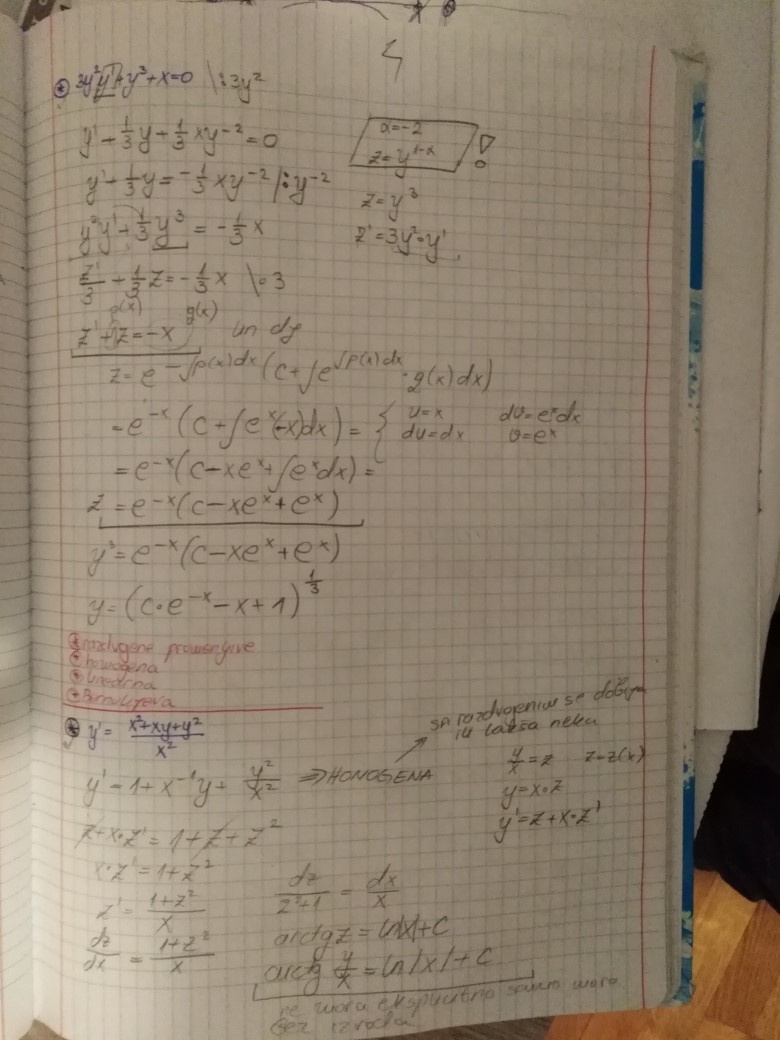 4
3y²y'+y³+x=0 \:3y²
y'+1/3y+1/3xy⁻²=0
α=-2
z=y^(1-α) !
y'+1/3y=-1/3xy⁻² /:y⁻²
z=y³
y²y'+1/3y³=-1/3x
z'=3y²·y'
z'/3+1/3z=-1/3x \·3
p(x) g(x)
z'+1z=-x lin dj
z=e^(-∫p(x)dx)(c+∫e^(∫p(x)dx)·g(x)dx)
=e^(-x)(c+∫e^x(-x)dx)= { u=x dv=e^xdx
du=dx v=e^x
=e^(-x)(c-xe^x+∫e^xdx)=
z=e^(-x)(c-xe^x+e^x)
y³=e^(-x)(c-xe^x+e^x)
y=(c·e^(-x)-x+1)^(1/3)
⊛ razdvojene promenljive
⊛ homogena
⊛ linearna
⊛ Bernulijeva
⊛ y'=(x²+xy+y²)/x²
sa razdvojenim se dobija
ili lakša neka
y'=1+x⁻¹y+y²/x² ⇒HOMOGENA
y/x=z z=z(x)
y=x·z
y'=z+x·z'
z+x·z'=1+z+z²
x·z'=1+z²
z'=(1+z²)/x
dz/dx=(1+z²)/x
dz/(z²+1)=dx/x
arctgz=ln|x|+c
arctg y/x=ln|x|+c
ne mora eksplicitno samo mora
bez izvoda